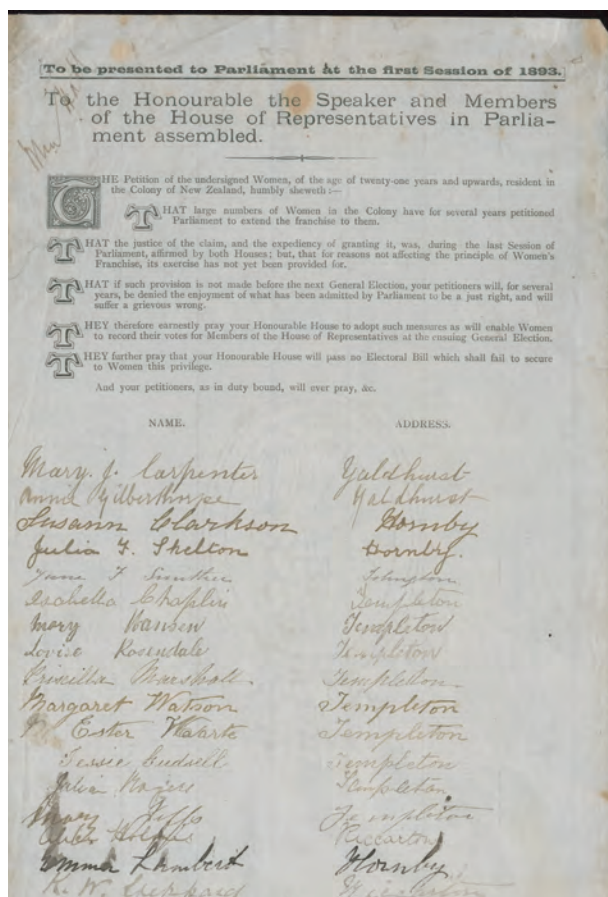 To be presented to Parliament at the first Session of 1893.
To the Honourable the Speaker and Members
of the House of Representatives in Parlia-
ment assembled.
THE Petition of the undersigned Women, of the age of twenty-one years and upwards, resident in
the Colony of New Zealand, humbly sheweth:—
THAT large numbers of Women in the Colony have for several years petitioned
Parliament to extend the franchise to them.
THAT the justice of the claim, and the expediency of granting it, was, during the last Session of
Parliament, affirmed by both Houses; but, that for reasons not affecting the principle of Women's
Franchise, its exercise has not yet been provided for.
THAT if such provision is not made before the next General Election, your petitioners will, for several
years, be denied the enjoyment of what has been admitted by Parliament to be a just right, and will
suffer a grievous wrong.
THEY therefore earnestly pray your Honourable House to adopt such measures as will enable Women
to record their votes for Members of the House of Representatives at the ensuing General Election.
THEY further pray that your Honourable House will pass no Electoral Bill which shall fail to secure
to Women this privilege.
And your petitioners, as in duty bound, will ever pray, &c.
NAME. ADDRESS.
Mary. J. Carpenter Yaldhurst
Annie Gilberthorpe Yaldhurst
Susann Clarkson Hornby
Julia F. Shelton Hornby.
Islington
Isabella Chaplin Templeton
Mary Hansen Templeton
Louise Rosendale Templeton
Priscilla Marshall. Templeton
Margaret Watson Templeton
M Ester Templeton
Jessie Templeton
Julia Rogers Templeton
Mary Templeton
Riccarton
Emma Lambert Hornby
K. W. Sheppard Riccarton